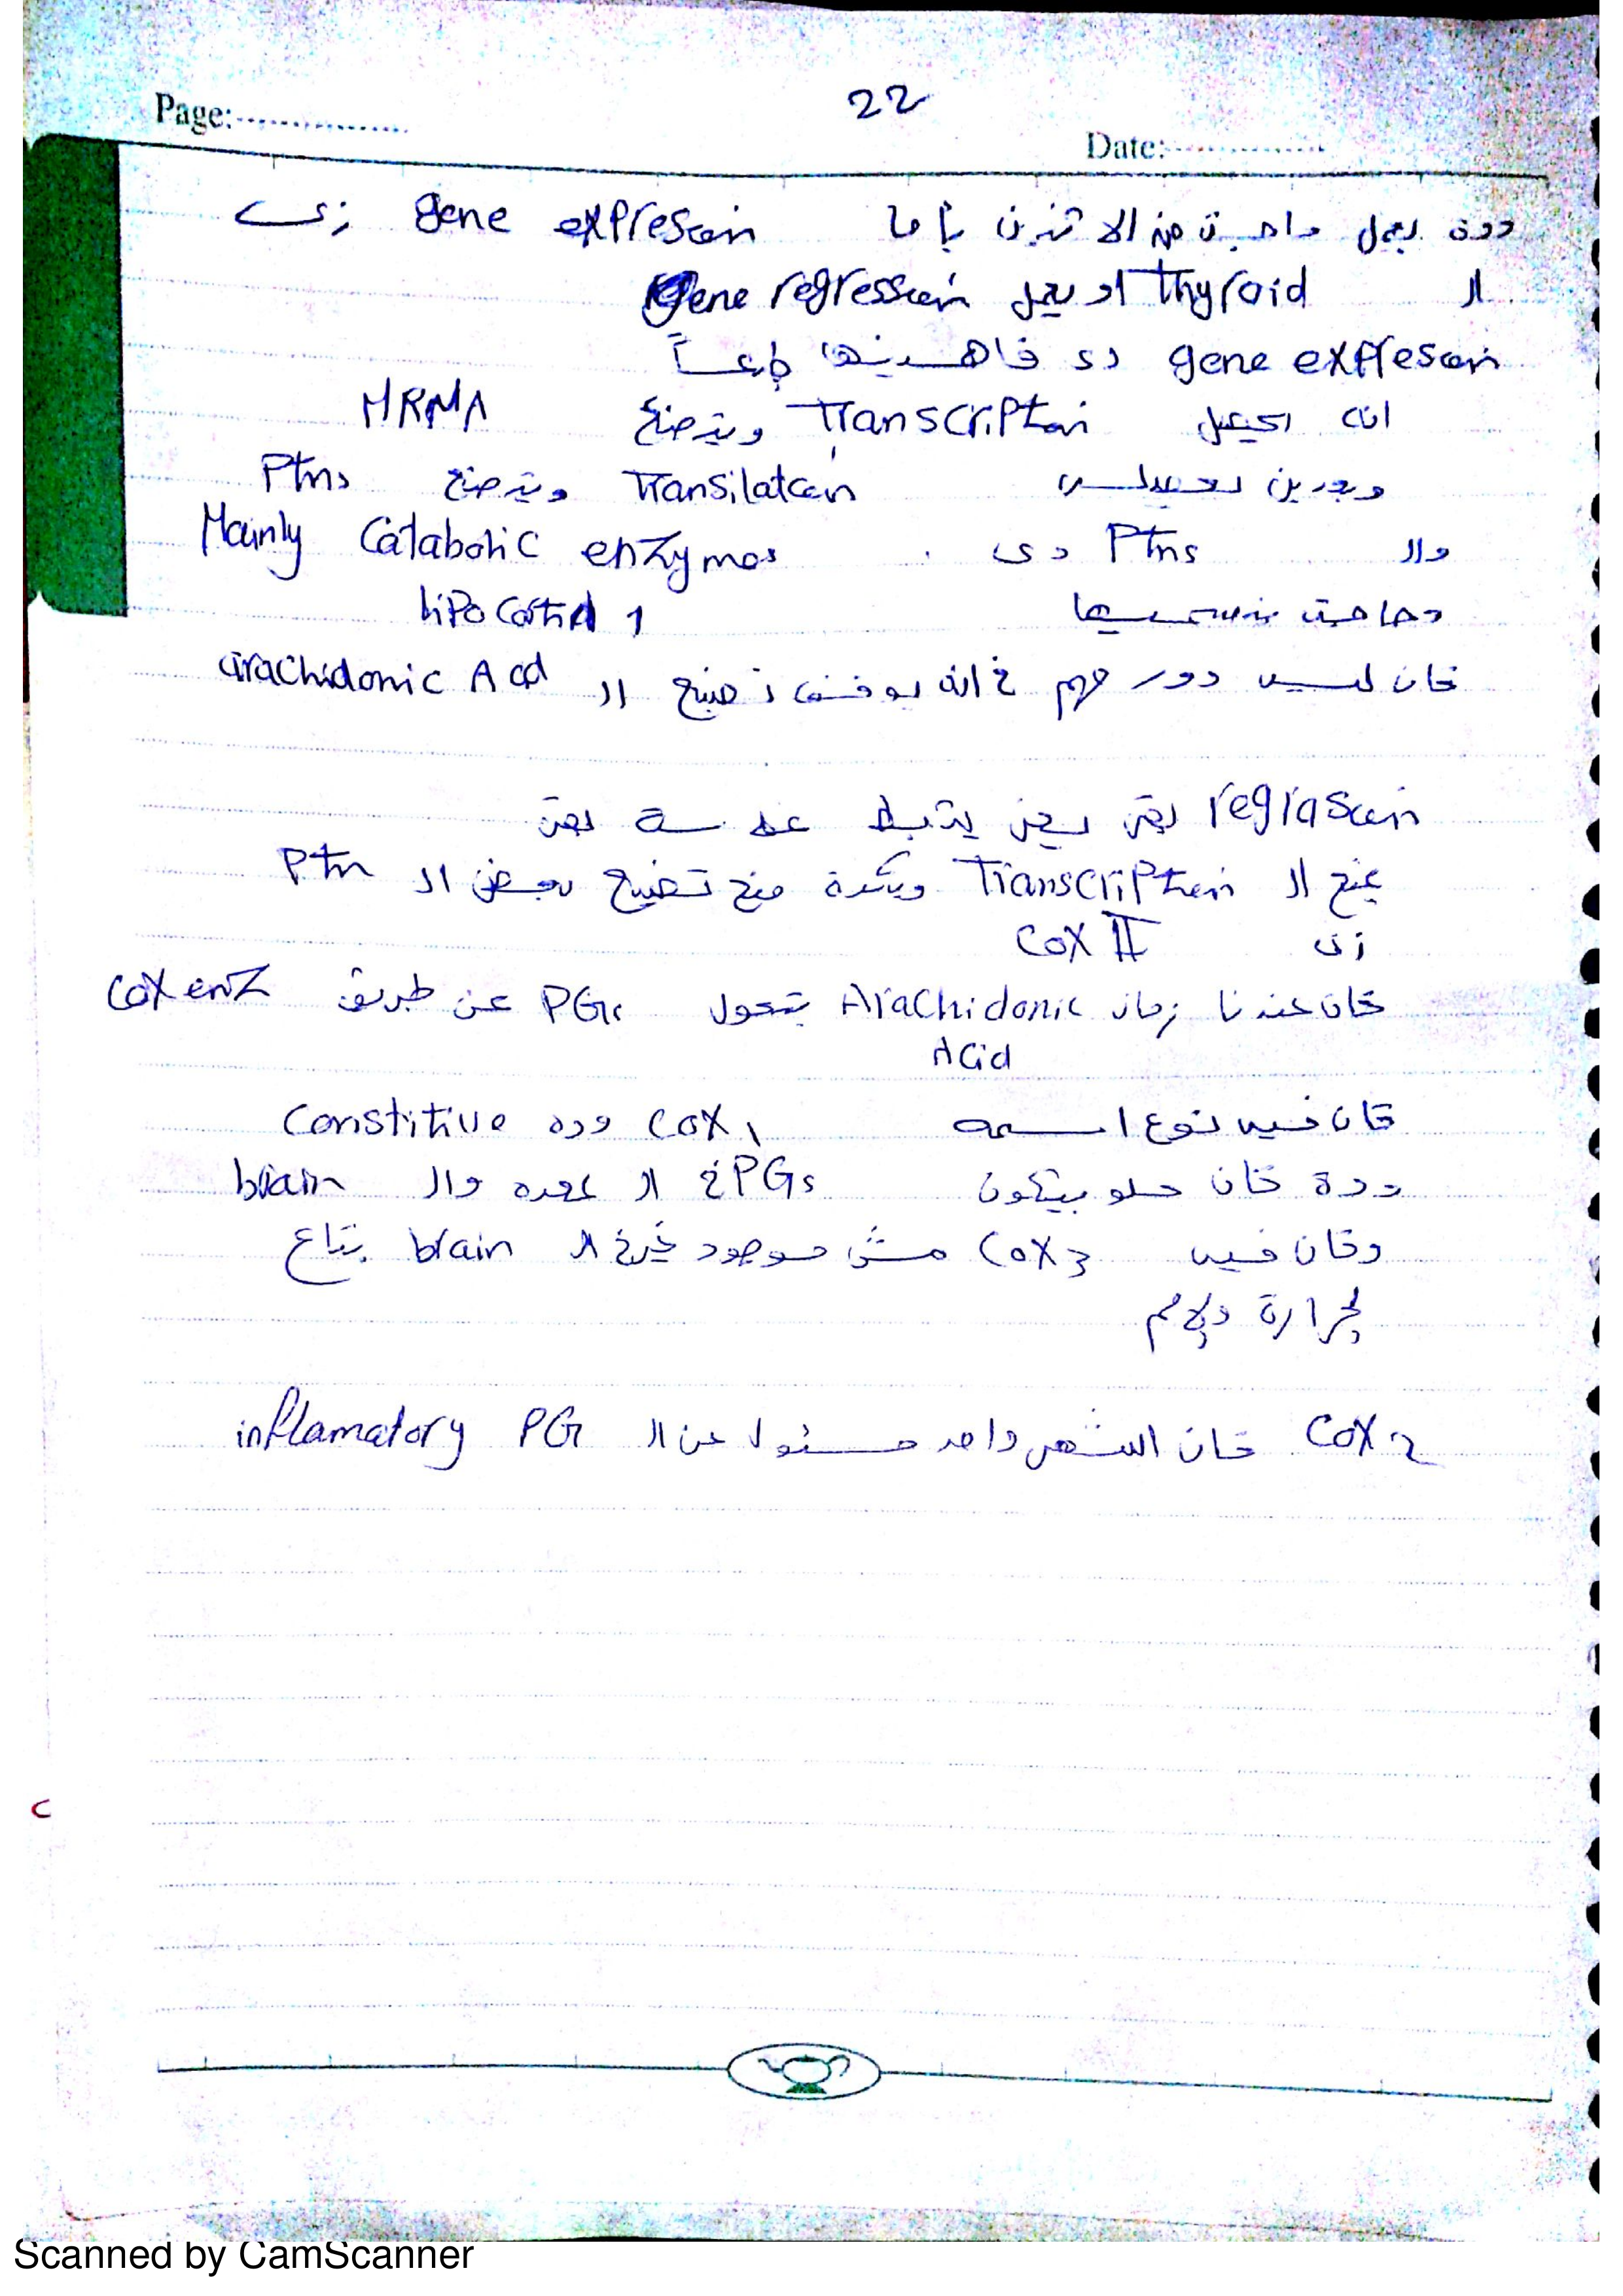 22
Page:
Date:
ودة بيعمل واحدة من الاتنين يا اما gene expresion زى
الـ Thyroid او يعمل gene regression
gene expresion دى فاهمينها طبعاً
انه هيعمل Transcription ويتصنع MRNA
وبعدين يعمل Transilation ويتصنع Ptns
والـ Ptns دى Mainly Catabolic enzymes
وحاجة بنسميها lipocortin 1
كان ليه دور مهم فى انه يوقف تصنيع الـ arachidonic Acid
regression يعنى يثبط عملية يعنى
يمنع الـ Transcription وبكدة منع تصنيع بعض الـ Ptn
زى COX II
كان عندنا زمان Arachidonic بتحول PGs عن طريق COX enz
Acid
كان فيه نوع اسمه COX 1 وده Constitive
ودة كان حلو بيتكون PGs فى الـ معده والـ brain
وكان فيه COX 3 مش موجود غير فى الـ brain بتاع
الحرارة والالم
COX 2 كان اشهر واحد مسئول عن الـ inflamatory PG
Scanned by CamScanner